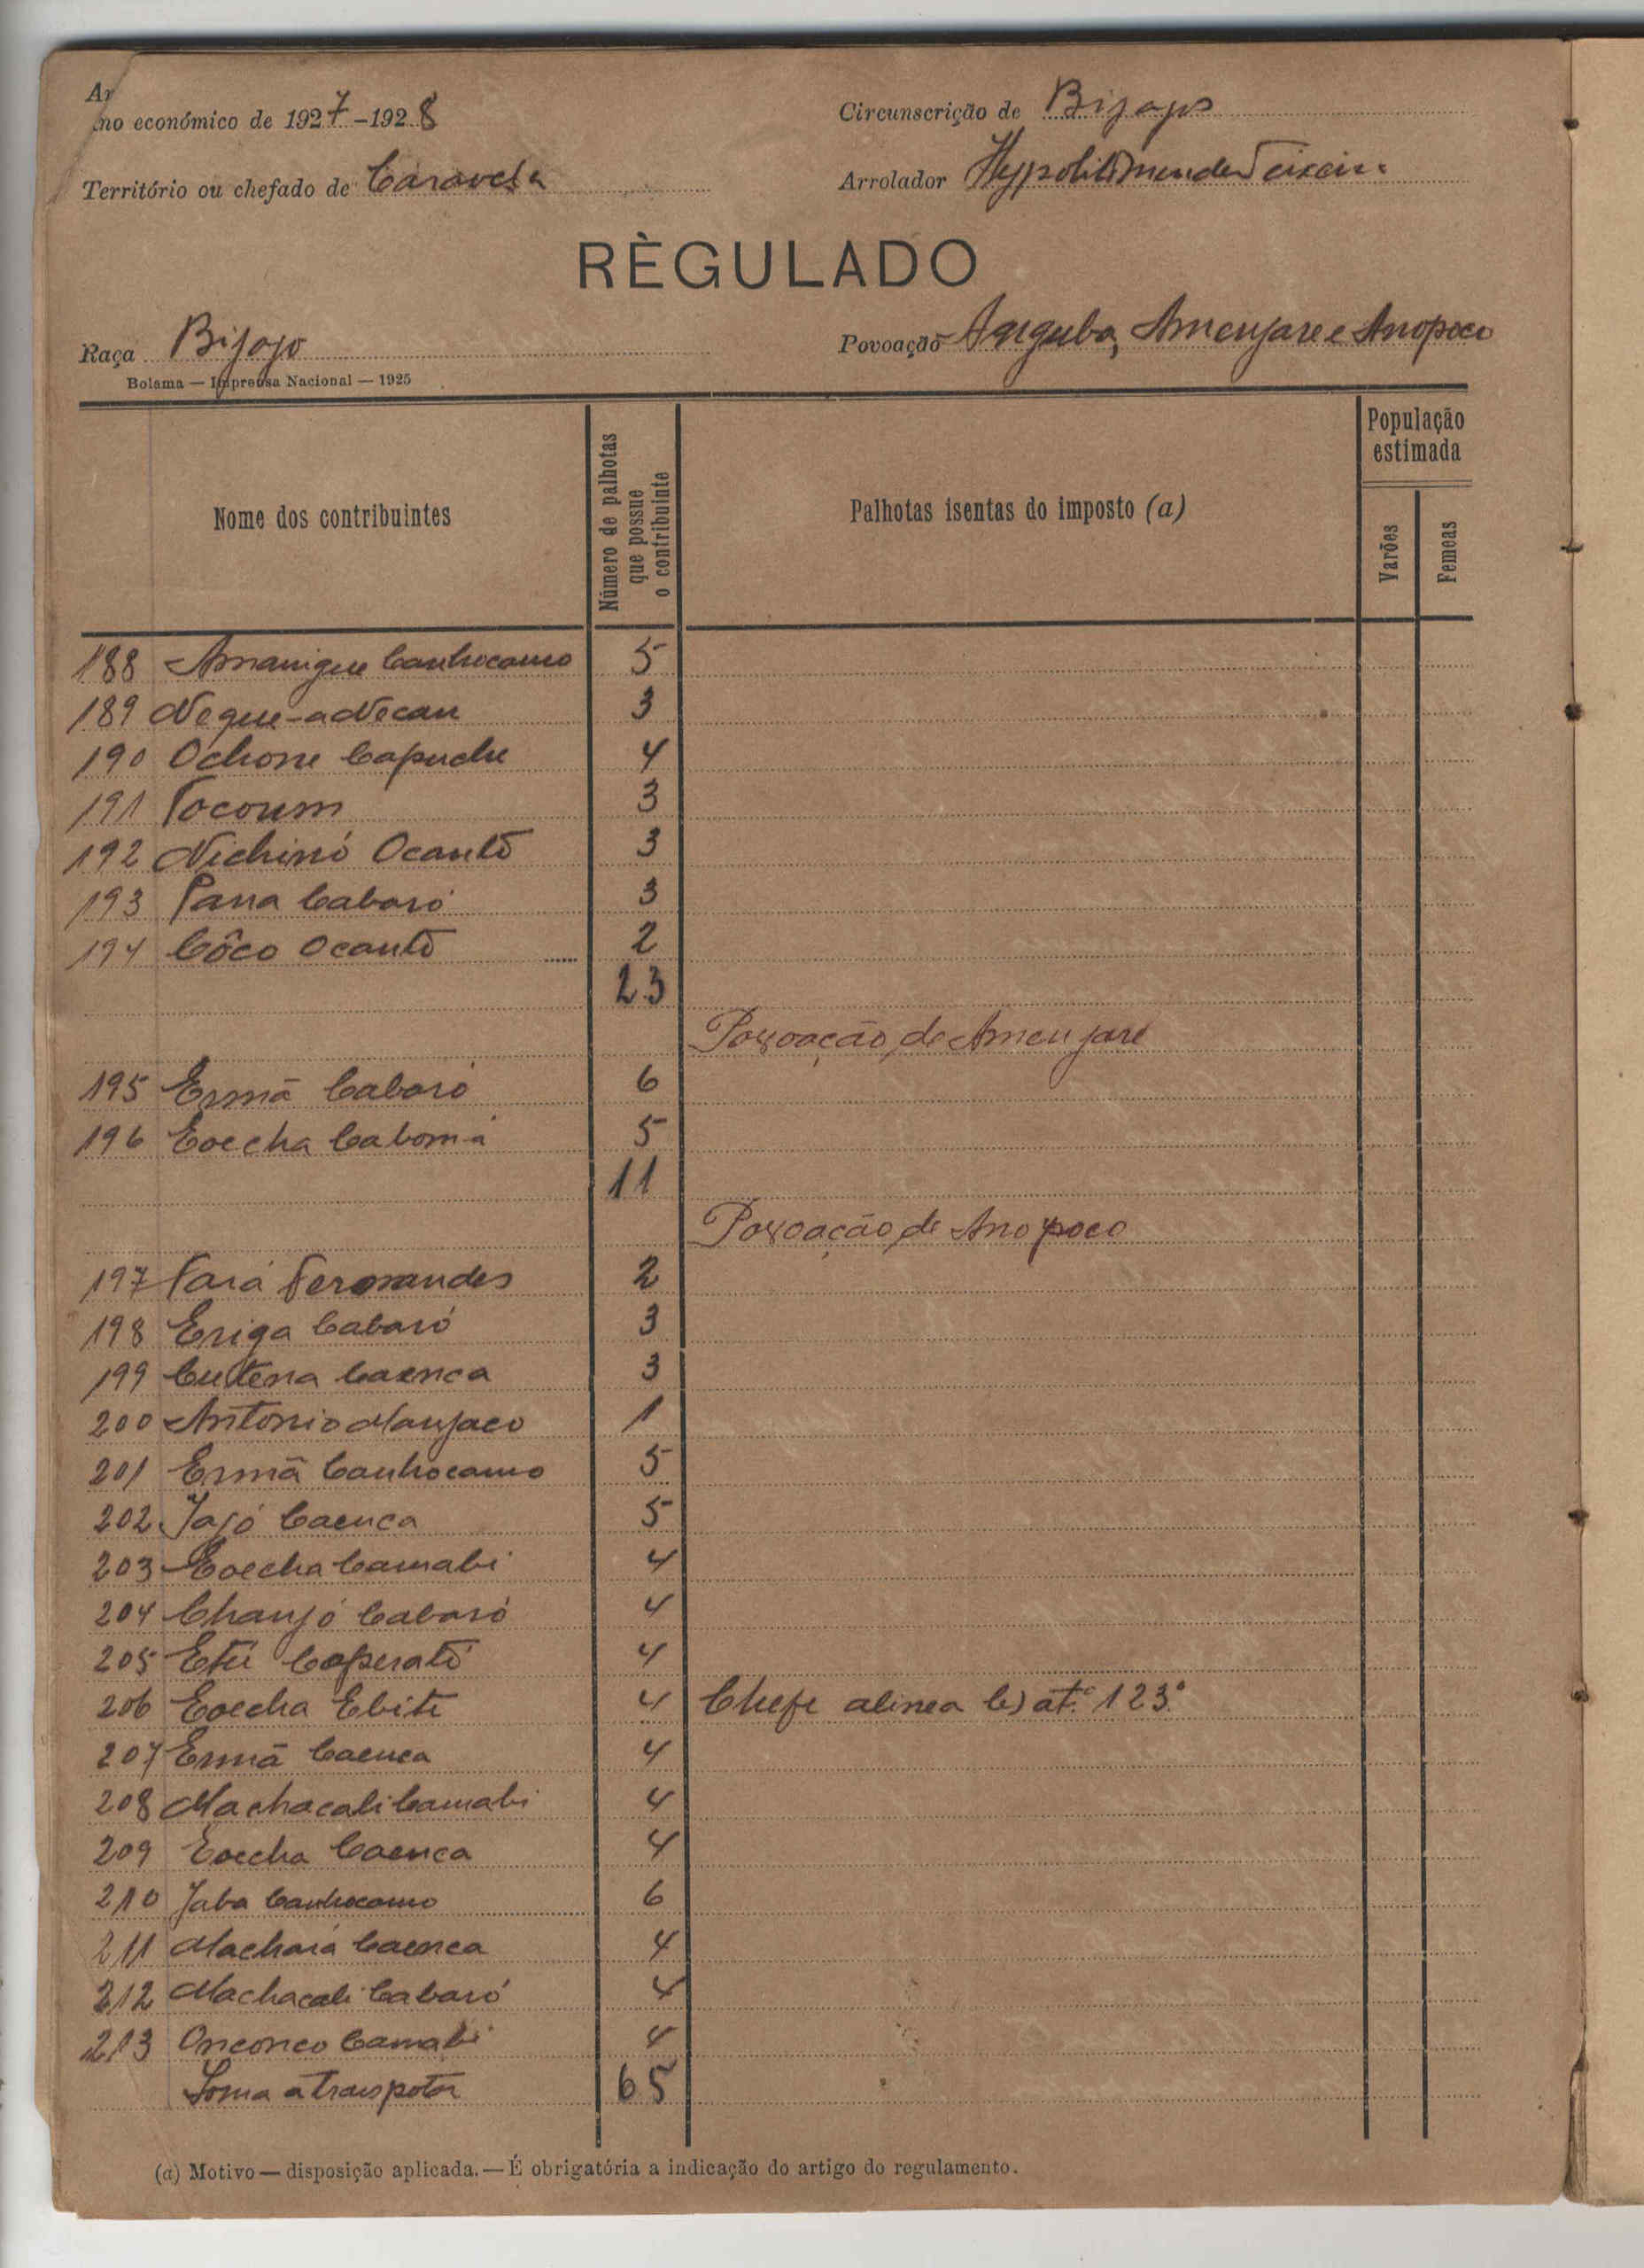 Ano económico de 1927-1928
Circunscrição de Bijagos
Território ou chefado de Caravela
Arrolador Hypolito Mendes Teixeira
RÈGULADO
Raça Bijago
Povoação Anguba, Amenjare e Anopoco
Bolama — Imprensa Nacional — 1925
Nome dos contribuintes
Número de palhotas que possue o contribuinte
Palhotas isentas do imposto (a)
População estimada
Varões
Femeas
188 Amanigue Canhocamo 5
189 Neque-a Necan 3
190 Ochone Capuche 4
191 Tocoum 3
192 Nichinó Ocantõ 3
193 Pana Cabaró 3
194 Côco Ocantõ 2
23
Povoação de Amenjare
195 Ermã Cabaró 6
196 Eoecha Cabomá 5
11
Povoação de Anopoco
197 Fará Fernandes 2
198 Eriga Cabaró 3
199 Cutena Caenca 3
200 Antonio Manjaco 1
201 Ermã Canhocamo 5
202 Jajó Caenca 5
203 Eoecha Camabi 4
204 Chanjó Cabaró 4
205 Etú Coperatõ 4
206 Eoecha Ebite 4 Chefe alinea b) atº. 123º
207 Ermã Caenca 4
208 Machacali Camabi 4
209 Eoecha Caenca 4
210 Jaba Canhocamo 6
211 Machará Caenca 4
212 Machacali Cabaró 4
213 Onconco Camabi 4
Soma a transpotar 65
(a) Motivo — disposição aplicada. — É obrigatória a indicação do artigo do regulamento.